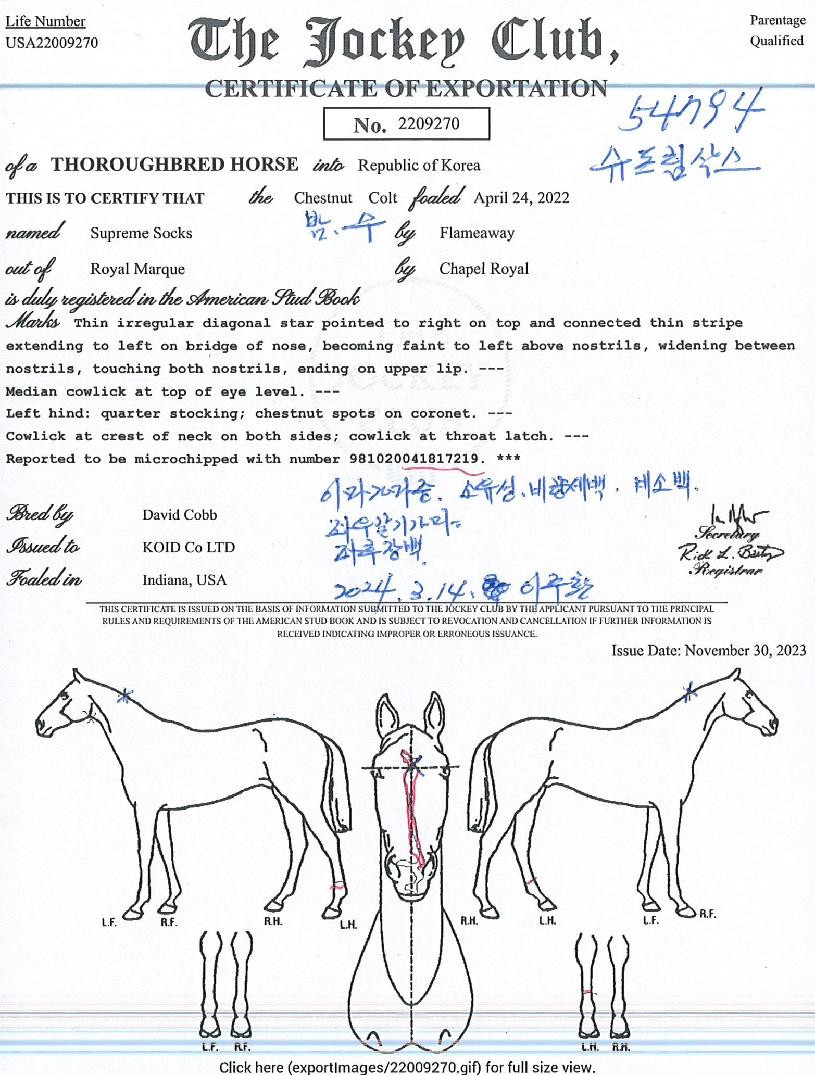 Life Number
USA22009270
The Jockey Club,
Parentage
Qualified
CERTIFICATE OF EXPORTATION
No. 2209270
54794
슈프림삭스
of a THOROUGHBRED HORSE into Republic of Korea
THIS IS TO CERTIFY THAT the Chestnut Colt foaled April 24, 2022
밤. 수
named Supreme Socks by Flameaway
out of Royal Marque by Chapel Royal
is duly registered in the American Stud Book
Marks Thin irregular diagonal star pointed to right on top and connected thin stripe
extending to left on bridge of nose, becoming faint to left above nostrils, widening between
nostrils, touching both nostrils, ending on upper lip. ---
Median cowlick at top of eye level. ---
Left hind: quarter stocking; chestnut spots on coronet. ---
Cowlick at crest of neck on both sides; cowlick at throat latch. ---
Reported to be microchipped with number 981020041817219. ***
소유성.비량세백.
Bred by David Cobb
좌우갈기가마.
Issued to KOID Co LTD
좌후장백.
Foaled in Indiana, USA
2024. 3. 14.
Secretary
Registrar
THIS CERTIFICATE IS ISSUED ON THE BASIS OF INFORMATION SUBMITTED TO THE JOCKEY CLUB BY THE APPLICANT PURSUANT TO THE PRINCIPAL
RULES AND REQUIREMENTS OF THE AMERICAN STUD BOOK AND IS SUBJECT TO REVOCATION AND CANCELLATION IF FURTHER INFORMATION IS
RECEIVED INDICATING IMPROPER OR ERRONEOUS ISSUANCE.
Issue Date: November 30, 2023
L.F. R.F. R.H. L.H. R.H. L.H. L.F. R.F.
L.F. R.F. L.H. R.H.
Click here (exportImages/22009270.gif) for full size view.